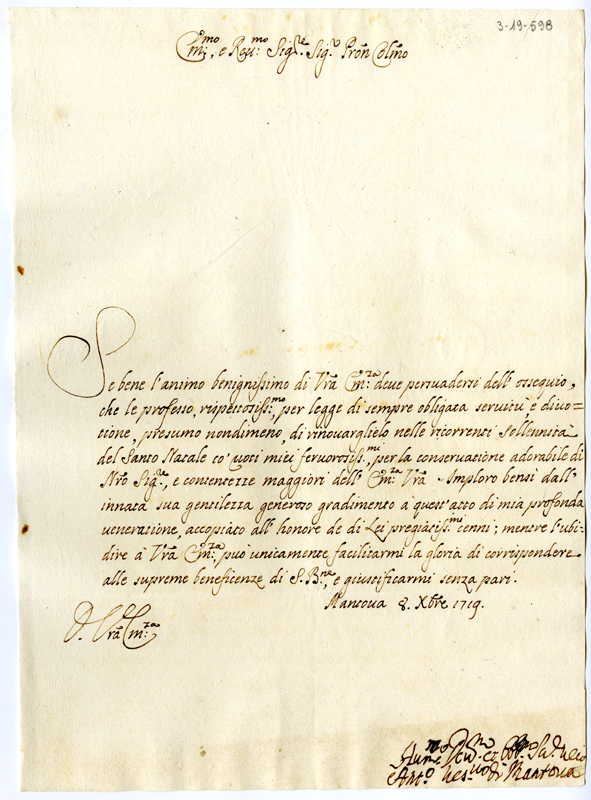 3-19-598
Em:mo, e Reu:mo Sig:re Sig:r Pron Colmo
Se bene l'animo benignissimo di Vra Em:za deve persuadersi dell'ossequio,
che le professo, rispettosiss:mo, per legge di sempre obligata servitù e divo=
tione, presumo nondimeno, di rinouarglielo nelle ricorrenti sollennità
del Santo Natale co' uoti miei feruorosiss:mi, per la conseruatione adorabile di
Nro Sig:re, e contentezze maggiori dell'Em:za Vra. Imploro bensì dall'
innata sua gentilezza generoso gradimento à quest'atto di mia profonda
ueneratione, accopiato all'honore de di Lei pregiatiss:mi cenni; mentre l'ubi-
dire à Vra Em:za, può unicamente facilitarmi la gloria di corrispondere
alle supreme beneficenze di S. B:ne, e giustificarmi senza pari.
Mantoua 8. Xbre 1719.
D. Vra Em:za
Hum:mo Deu:mo et Obb:mo Ser:
Ant:o Ves:uo di Mantoua